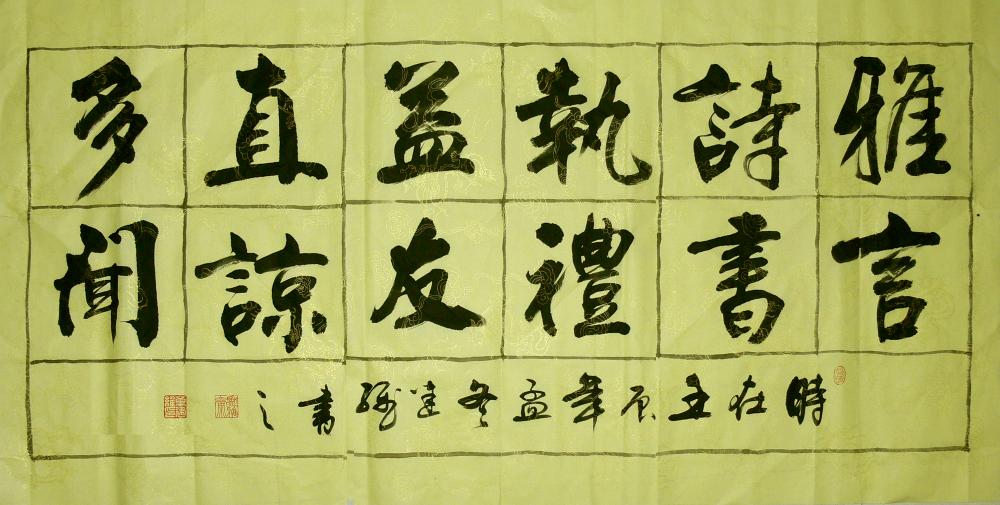 雅言
詩書
執禮
益友
直諒
多聞
時在壬辰年孟冬建書之